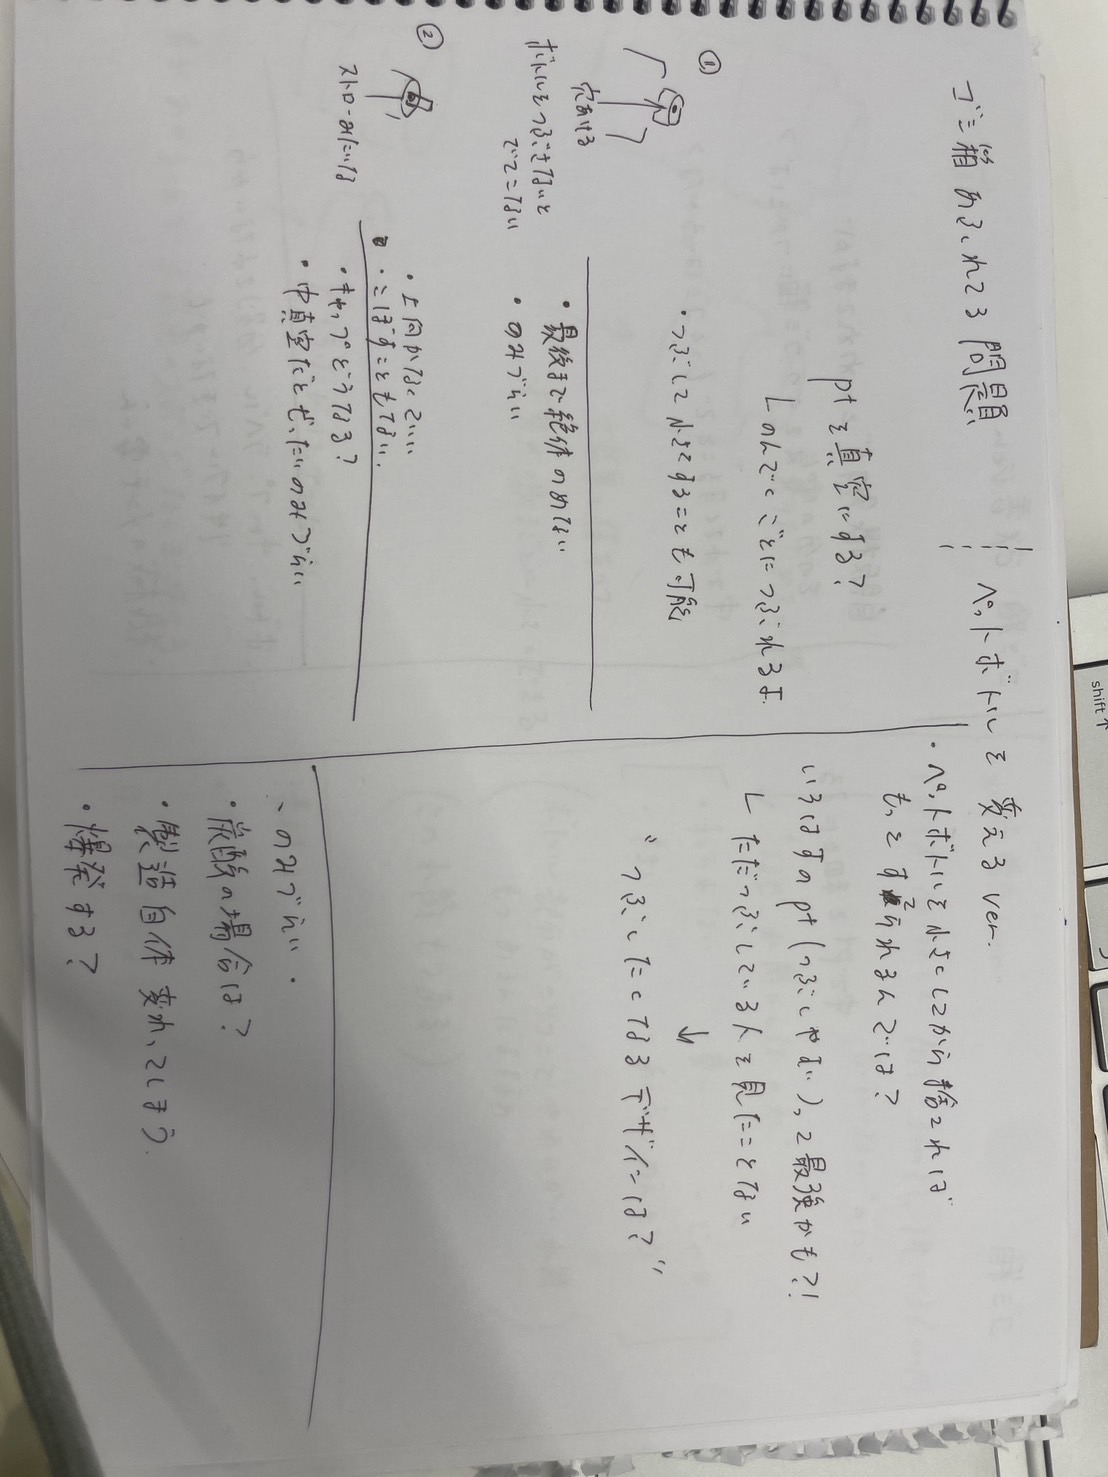 ゴミ箱あふれてる問題
ペットボトルを変える ver.
ptを真空にする?
└のんでくごとにつぶれるよ.
・つぶして小さくすることも可能
①
穴あける
ボトルをつぶさないと
でてこない
・最後まで絶体のめない
・のみづらい
②
ストローみたいな
・上向かなくていい
・こぼすこともない.
・キャップどうなる?
・中真空だとぜったいのみづらい
・ペットボトルを小さくしてから捨てれば
もっとすてられるんでは?
いろはすのpt(つぶしやすい)って最強かも?!
└ただつぶしている人を見たことない
↓
“つぶしたくなるデザインは?”
、のみづらい・
・炭酸の場合は?
・製造自体変わってしまう.
・爆発する?
shift